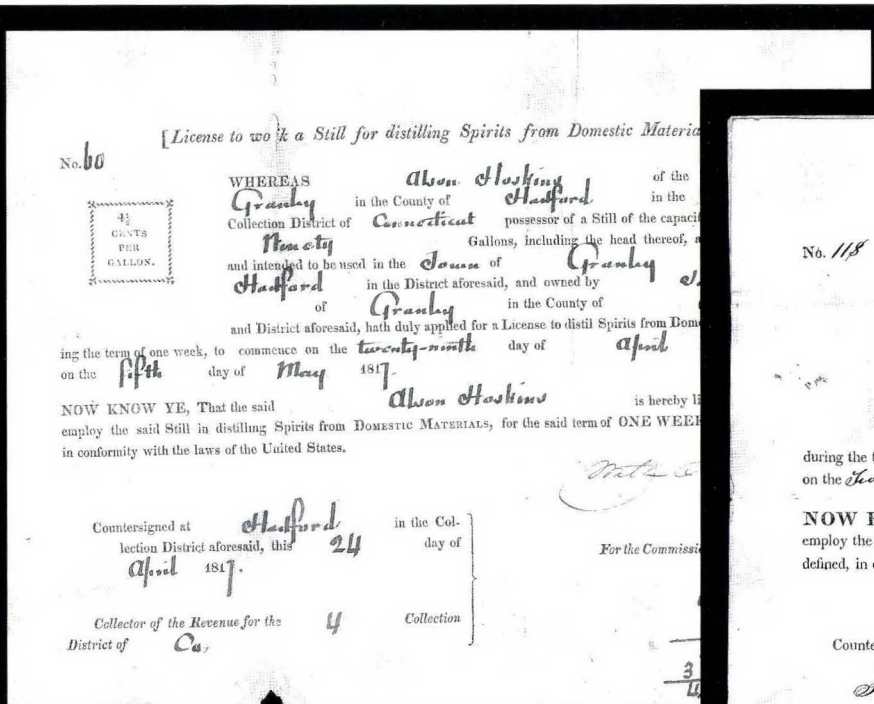 [License to wo k a Still for distilling Spirits from Domestic Materia
No. 60
4½
CENTS
PER
GALLON.
WHEREAS Alson Hoskins of the
Granby in the County of Hadford in the
Collection District of Connecticut possessor of a Still of the capacit
Ninety Gallons, including the head thereof, a
and intended to be used in the Town of Granby
Hadford in the District aforesaid, and owned by
of Granby in the County of
and District aforesaid, hath duly applied for a License to distil Spirits from Dome
ing the term of one week, to commence on the twenty-ninth day of April
on the fifth day of May 1817.
NOW KNOW YE, That the said Alson Hoskins is hereby li
employ the said Still in distilling Spirits from DOMESTIC MATERIALS, for the said term of ONE WEEK
in conformity with the laws of the United States.
Countersigned at Hadford in the Col-
lection District aforesaid, this 24 day of
April 1817.
For the Commissi
Collector of the Revenue for the 4 Collection
District of
3
4
No. 118
during the t
on the
NOW K
employ the
defined, in c
Counte